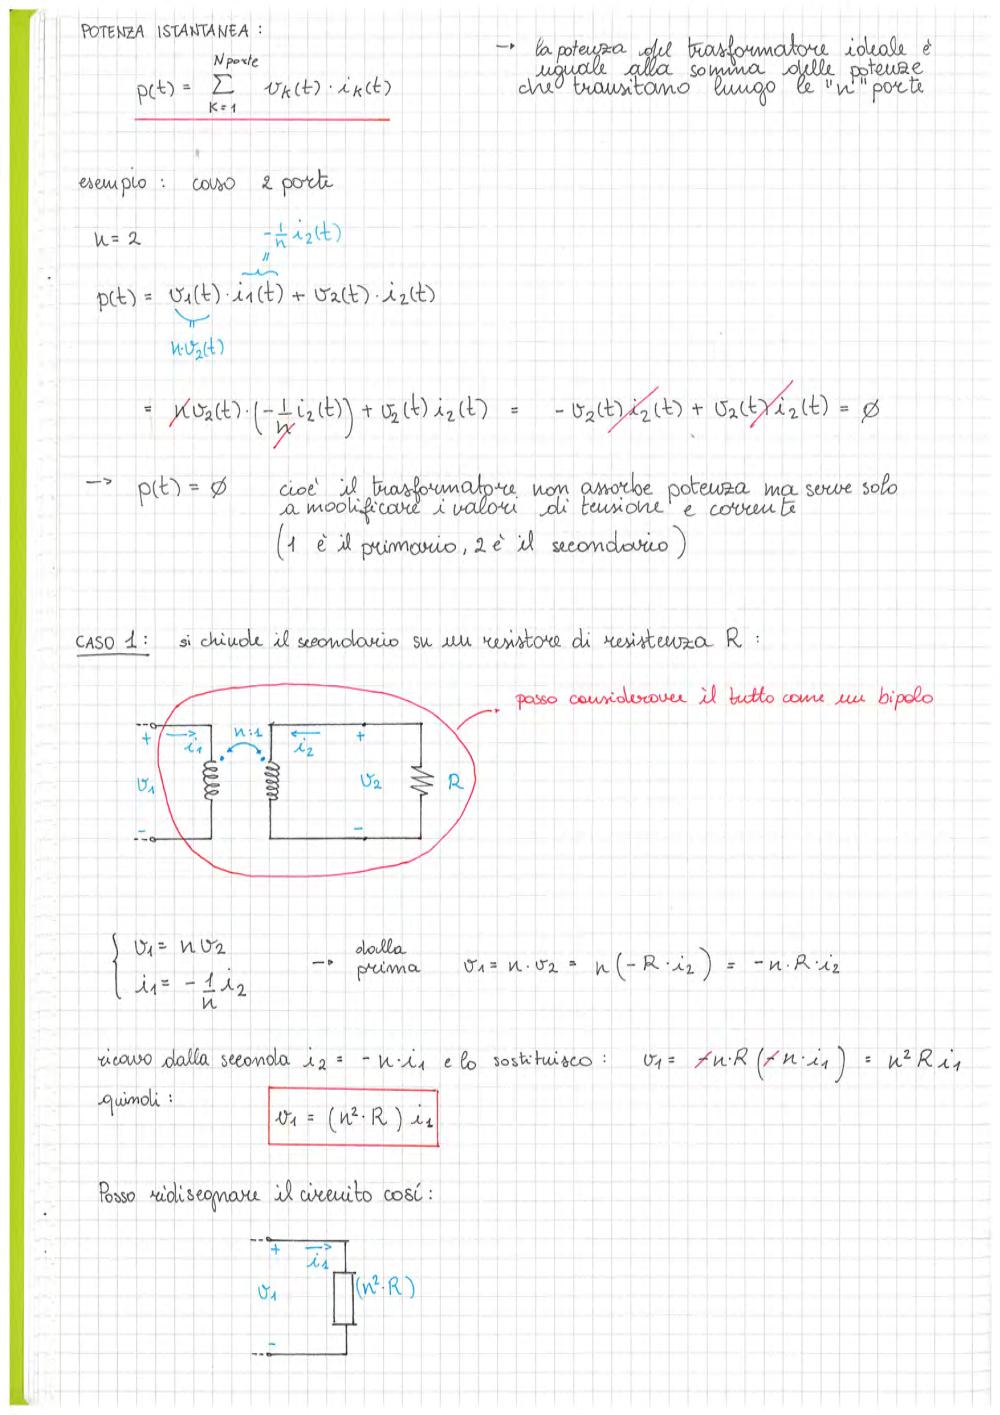 POTENZA ISTANTANEA :
p(t) = Σ vk(t) · ik(t)
N porte
K=1
→ la potenza del trasformatore ideale è
uguale alla somma delle potenze
che transitano lungo le "n" porte
esempio : caso 2 porte
n = 2
-1/n i2(t)
=
p(t) = v1(t) · i1(t) + v2(t) · i2(t)
=
n·v2(t)
= n v2(t) · (-1/n i2(t)) + v2(t) i2(t) = - v2(t) i2(t) + v2(t) i2(t) = ø
→ p(t) = ø cioè il trasformatore non assorbe potenza ma serve solo
a modificare i valori di tensione e corrente
(1 è il primario, 2 è il secondario)
CASO 1 : si chiude il secondario su un resistore di resistenza R :
posso considerare il tutto come un bipolo
+ → i1 n:1 ← i2 +
v1 v2 R
- -
{ v1 = n v2
i1 = -1/n i2
→ dalla
prima
v1 = n · v2 = n(-R · i2) = -n · R · i2
ricavo dalla seconda i2 = - n · i1 e lo sostituisco : v1 = -n·R (-n · i1) = n² R i1
quindi :
v1 = (n² · R) i1
Posso ridisegnare il circuito così :
+ → i1
v1 (n² · R)
-